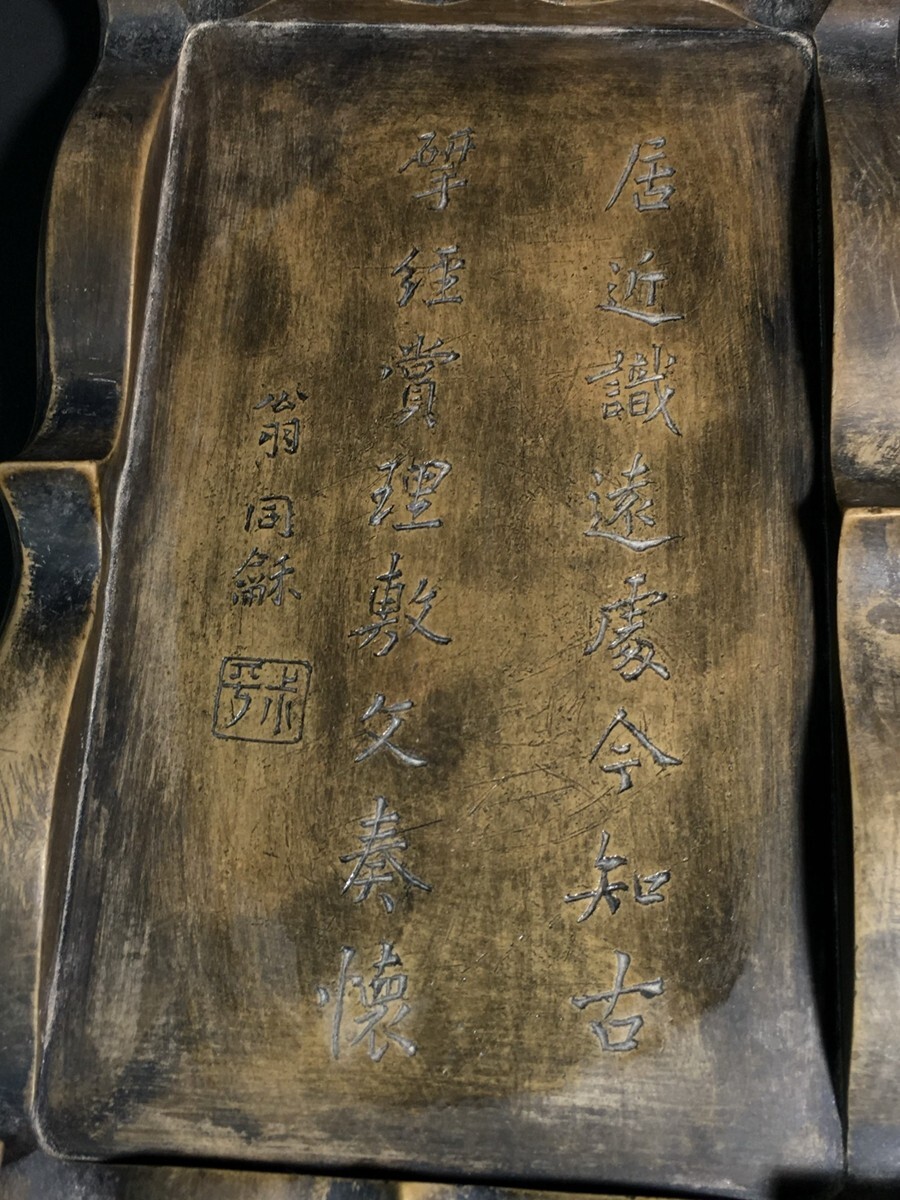 居近識遠處今知古
揅經賞理敷文奏懷
翁同龢
叔平